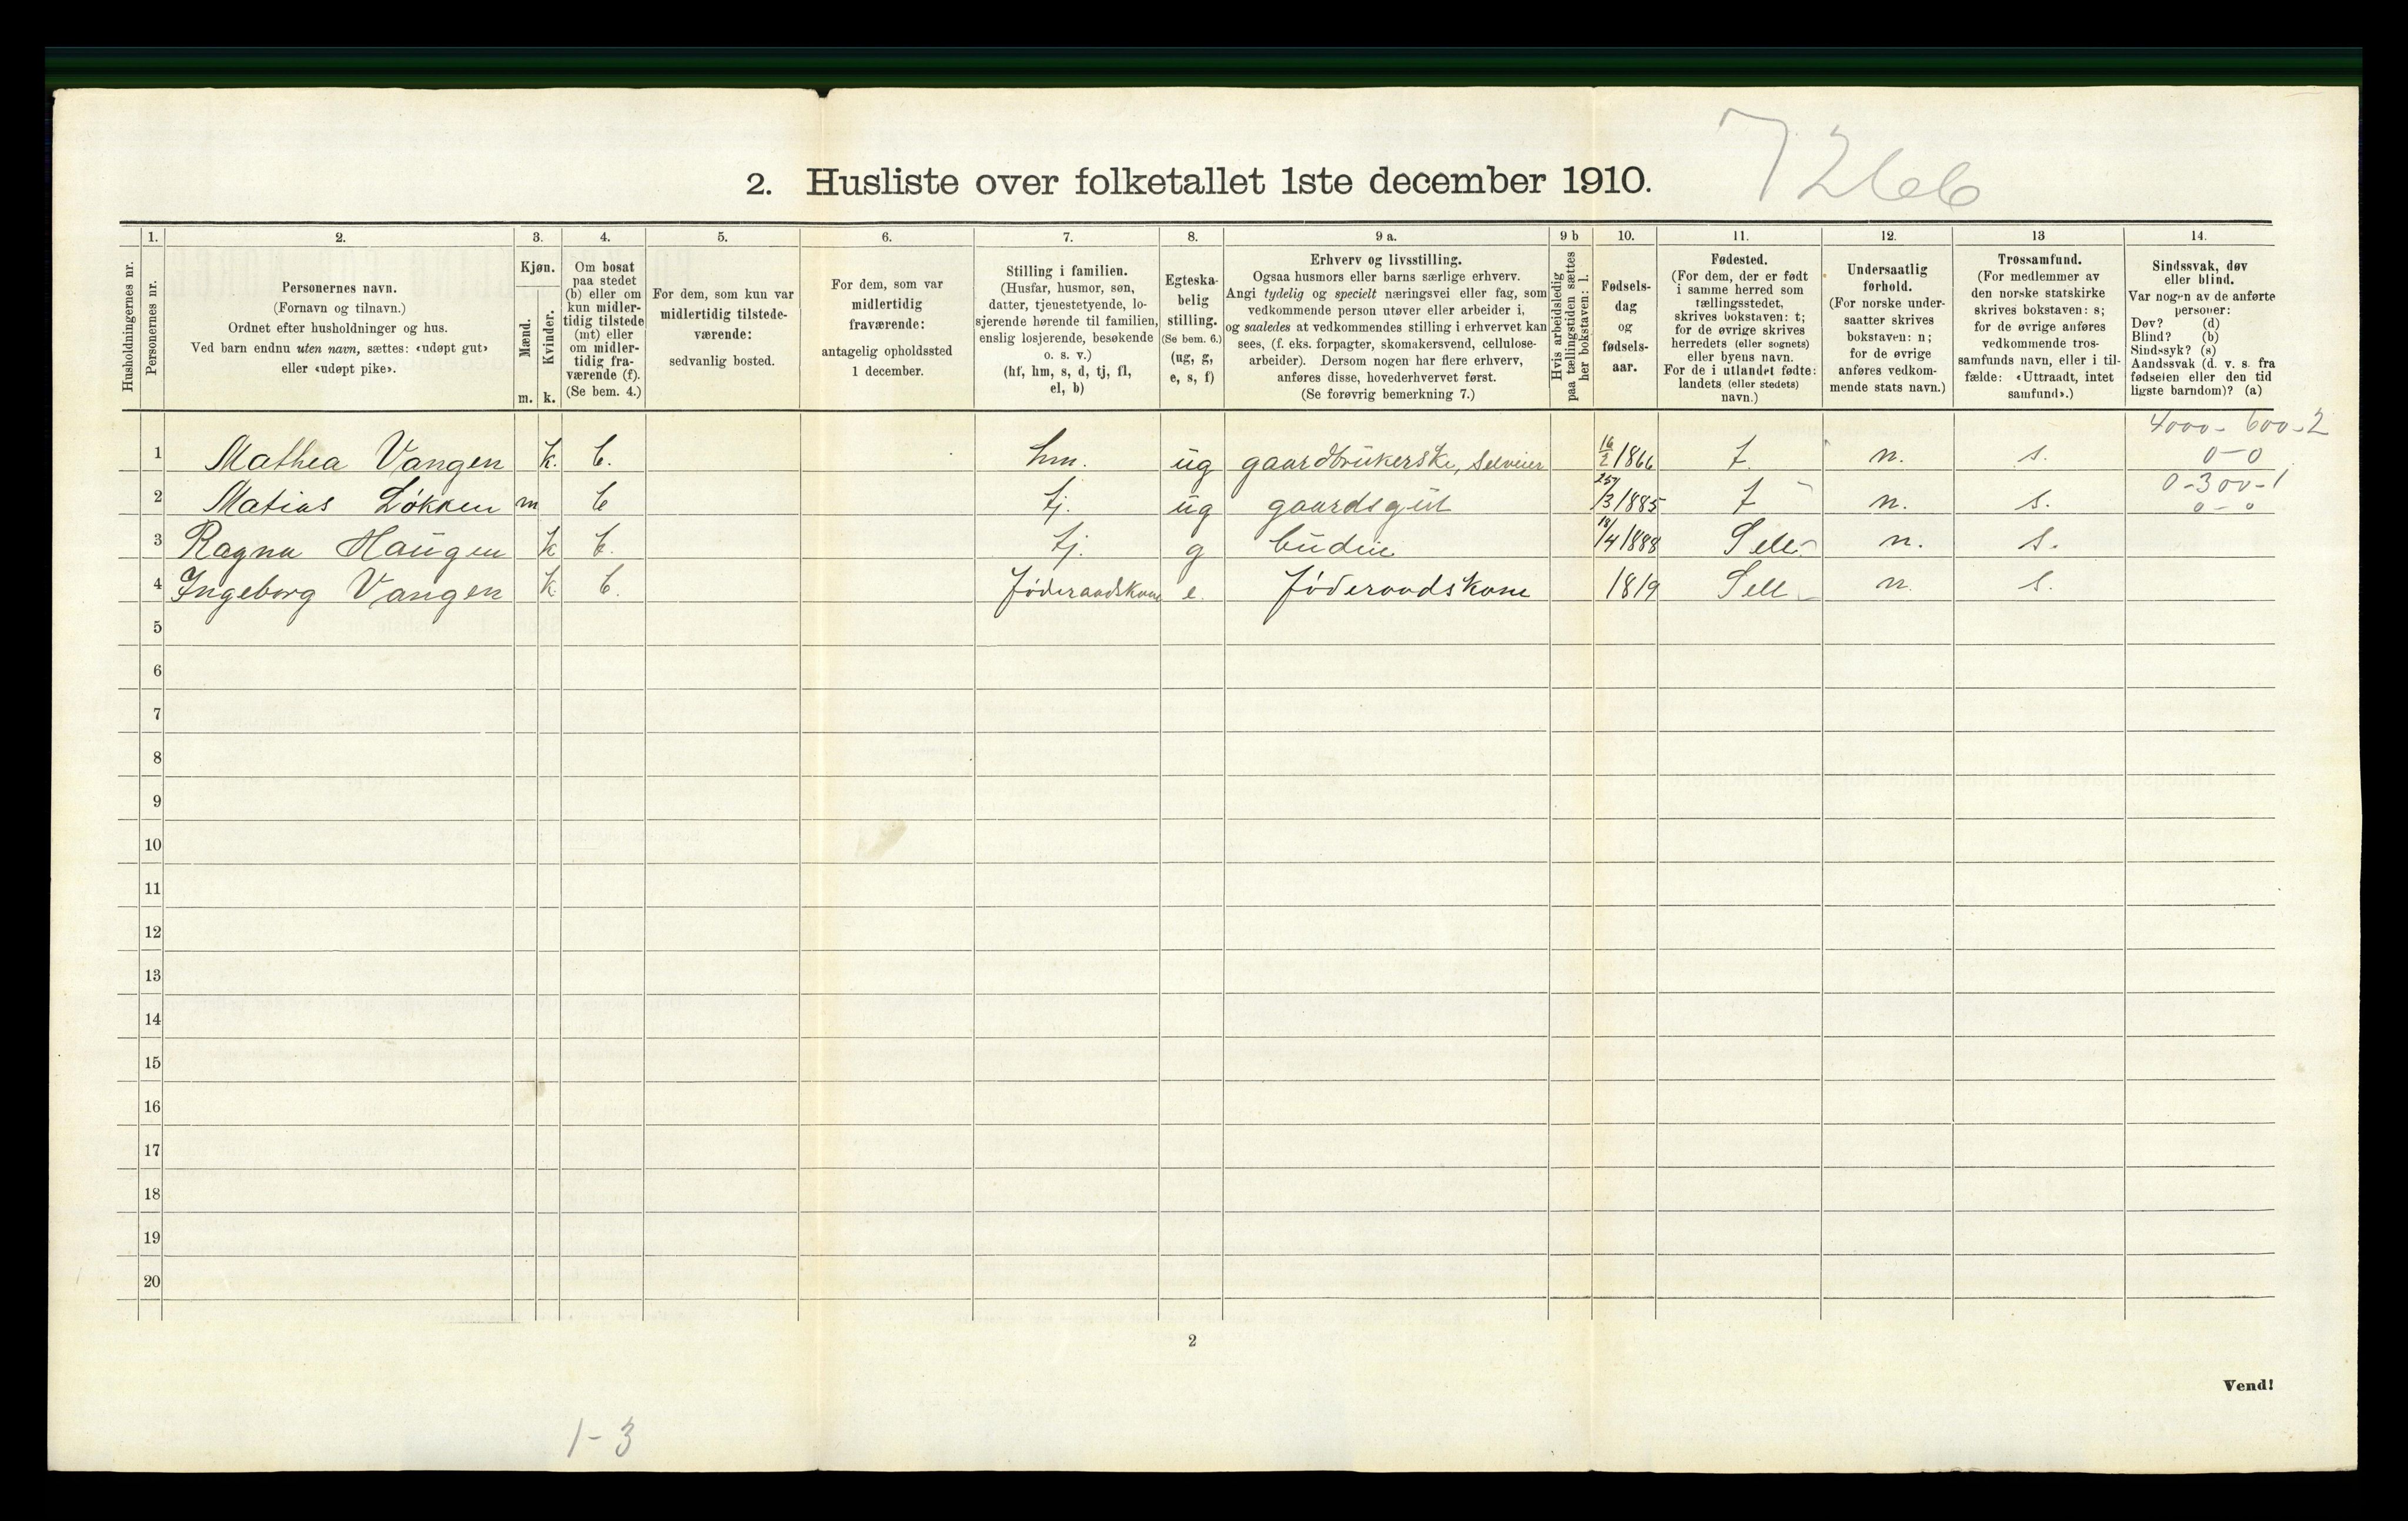 2. Husliste over folketallet 1ste december 1910.
7266
Husholdningernes nr.
1.
Personernes nr.
2.
Personernes navn.
(Fornavn og tilnavn.)
Ordnet efter husholdninger og hus.
Ved barn endnu uten navn, sættes: «udøpt gut»
eller «udøpt pike».
3.
Kjøn.
Mænd.
Kvinder.
m. k.
4.
Om bosat
paa stedet
(b) eller om
kun midler-
tidig tilstede
(mt) eller
om midler-
tidig fra-
værende (f).
(Se bem. 4.)
5.
For dem, som kun var
midlertidig tilstede-
værende:
sedvanlig bosted.
6.
For dem, som var
midlertidig
fraværende:
antagelig opholdssted
1 december.
7.
Stilling i familien.
(Husfar, husmor, søn,
datter, tjenestetyende, lo-
sjerende hørende til familien,
enslig losjerende, besøkende
o. s. v.)
(hf, hm, s, d, tj, fl,
el, b)
8.
Egteska-
belig
stilling.
(Se bem. 6.)
(ug, g,
e, s, f)
9 a.
Erhverv og livsstilling.
Ogsaa husmors eller barns særlige erhverv.
Angi tydelig og specielt næringsvei eller fag, som
vedkommende person utøver eller arbeider i,
og saaledes at vedkommendes stilling i erhvervet kan
sees, (f. eks. forpagter, skomakersvend, cellulose-
arbeider). Dersom nogen har flere erhverv,
anføres disse, hovederhvervet først.
(Se forøvrig bemerkning 7.)
9 b
Hvis arbeidsledig
paa tællingstiden sættes
her bokstaven: l.
10.
Fødsels-
dag
og
fødsels-
aar.
11.
Fødested.
(For dem, der er født
i samme herred som
tællingsstedet,
skrives bokstaven: t;
for de øvrige skrives
herredets (eller sognets)
eller byens navn.
For de i utlandet fødte:
landets (eller stedets)
navn.)
12.
Undersaatlig
forhold.
(For norske under-
saatter skrives
bokstaven: n;
for de øvrige
anføres vedkom-
mende stats navn.)
13
Trossamfund.
(For medlemmer av
den norske statskirke
skrives bokstaven: s;
for de øvrige anføres
vedkommende tros-
samfunds navn, eller i til-
fælde: «Uttraadt, intet
samfund».)
14.
Sindssvak, døv
eller blind.
Var nogen av de anførte
personer:
Døv? (d)
Blind? (b)
Sindssyk? (s)
Aandssvak (d. v. s. fra
fødselen eller den tid
ligste barndom)? (a)
4000 - 600 - 2
1 Mathea Vangen k. b. hm. ug gaardbrukerske, Selveier 16/2 1866 t. n. s. 0-0
0-300-1
2 Matias Løkken m b tj. ug gaardsgut 25/3 1885 t n. s. 0-0
3 Ragna Haugen k b. tj. g budeie 18/4 1888 Sell n. s.
4 Ingeborg Vangen k. b. føderaadskone e. føderaadskone 1819 Sell n. s.
5
6
7
8
9
10
11
12
13
14
15
16
17
18
19
20
2
Vend!
1-3